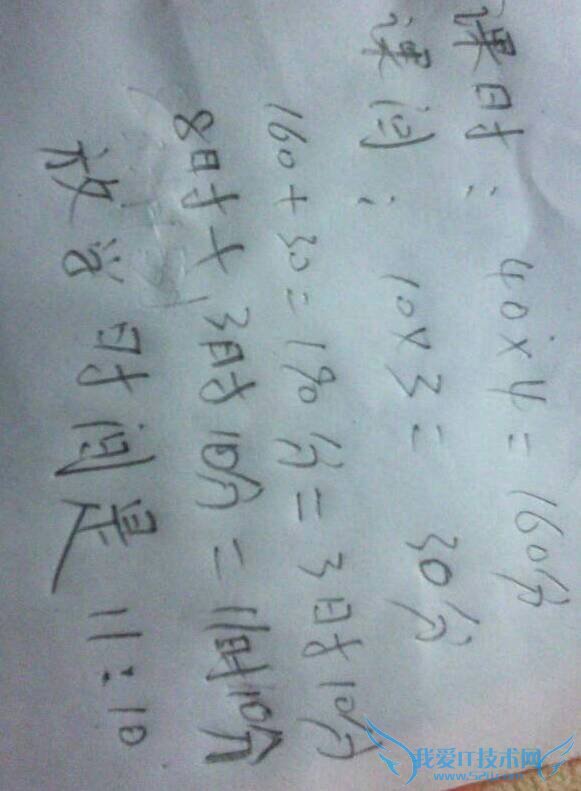 课时: 40×4=160分
课间: 10×3=30分
160+30=190分=3时10分
8时+3时10分=11时10分
放学时间是11:10
我爱IT技术网